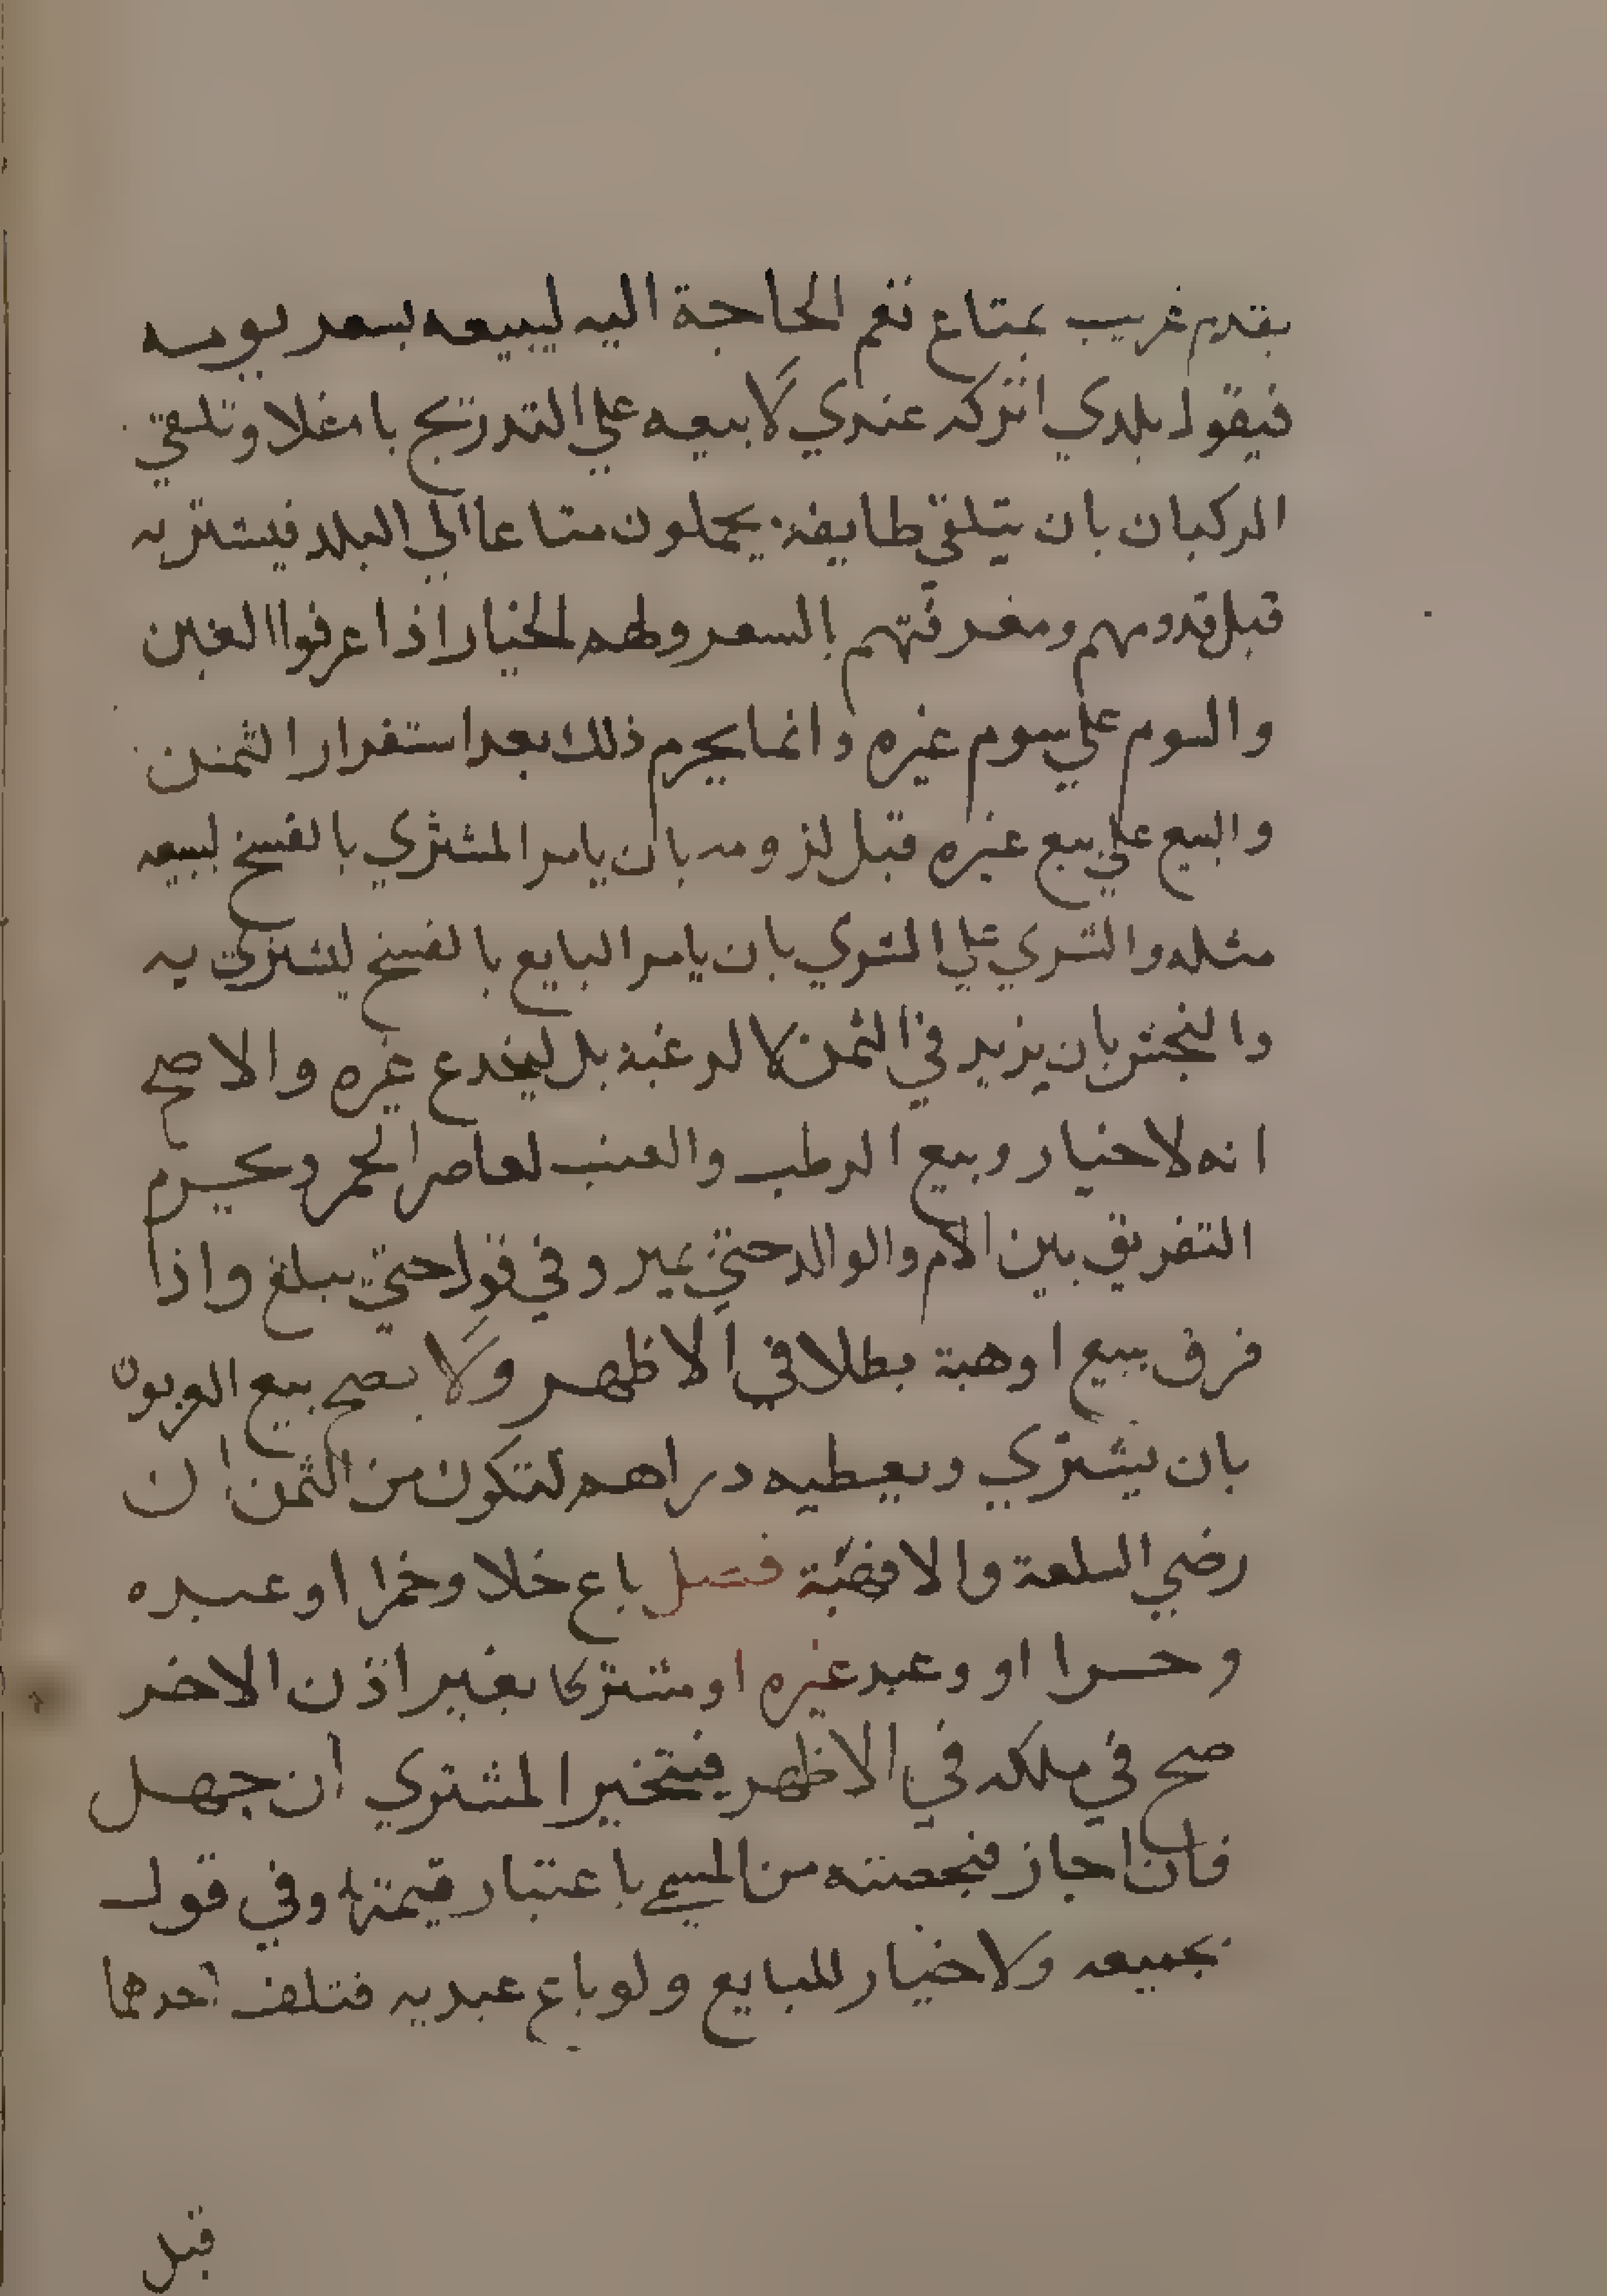 يقدم غريب بمتاع تعم الحاجة اليه ليبيعه بسعر يومه
فيقول بلدي اتركه عندي لابيعه علي التدريج باغلا وتلقي
الركبان بان يتلقي طايفة يحملون متاعا الي البلد فيشتريه
قبل قدومهم ومعرفتهم بالسعر ولهم الخيار اذا عرفوا الغبن
والسوم علي سوم غيره وانما يحرم ذلك بعد استقرار الثمن
والبيع علي بيع غيره قبل لزومه بان يامر المشتري بالفسخ لبيعه
مثله والشري علي الشري بان يامر البايع بالفسخ ليشتريه
والنجش بان يزيد في الثمن لا لرغبة بل ليخدع غيره والاصح
انه لا خيار وبيع الرطب والعنب لعاصر الخمر ويحرم
التفريق بين الام والوالد حتي يميز وفي قول حتي يبلغ واذا
فرق ببيع او هبة بطلا في الاظهر ولا يصح بيع العربون
بان يشتري ويعطيه دراهم لتكون من الثمن ان
رضي السلعة والا فهبة فصل باع خلا وخمرا او عبده
وحرا او وعبد غيره او مشتركا بغير اذن الاخر
صح في ملكه في الاظهر فيتخير المشتري ان جهل
فان اجاز فبحصته من المسمي باعتبار قيمتها وفي قول
بجميعه ولا خيار للبايع ولو باع عبديه فتلف احدهما
قبل